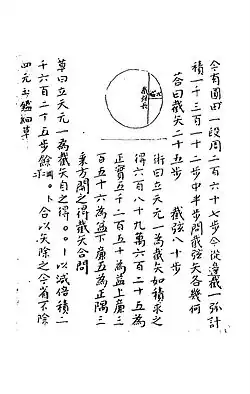 今有圓田一段周二百六十七步今從邊截一弧計
積一千三百一十二步中半步問截弦矢各幾何
荅曰截矢二十五步　截弦八十步
術曰立天元一為截矢如積求之
得六百八十九萬六百二十五為
正實五千二百五十為益上廉三
百五十六為益下廉五為正隅三
乘方開之得截矢合問
截弦長
草曰立天元一為截矢自之得○○|以減倍積二
千六百二十五步餘○卜合以矢除之今省不除
四元玉鑑細草